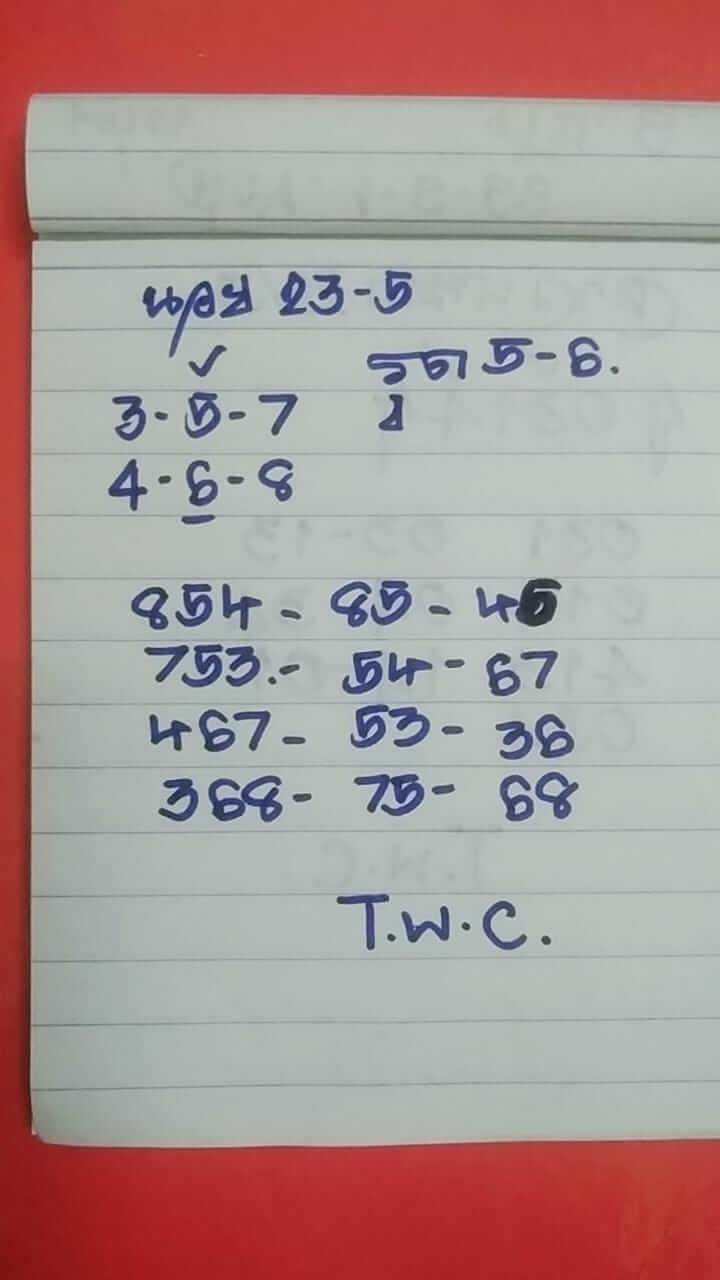 ฮานอย 23-5
✓ 5-6.
3-5-7
4-6-8
854 - 85 - 45
753.- 54 - 67
467 - 53 - 36
368 - 75 - 68
T.W.C.